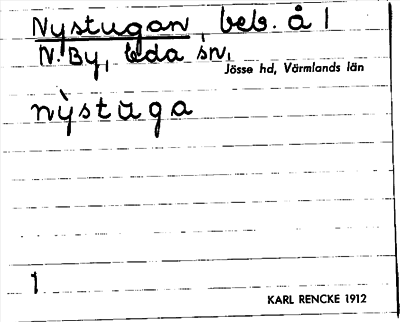 Nystugan, beb. å 1
N. By, Eda sn,
Jösse hd, Värmlands län
nỳstu̇ga
1
KARL RENCKE 1912